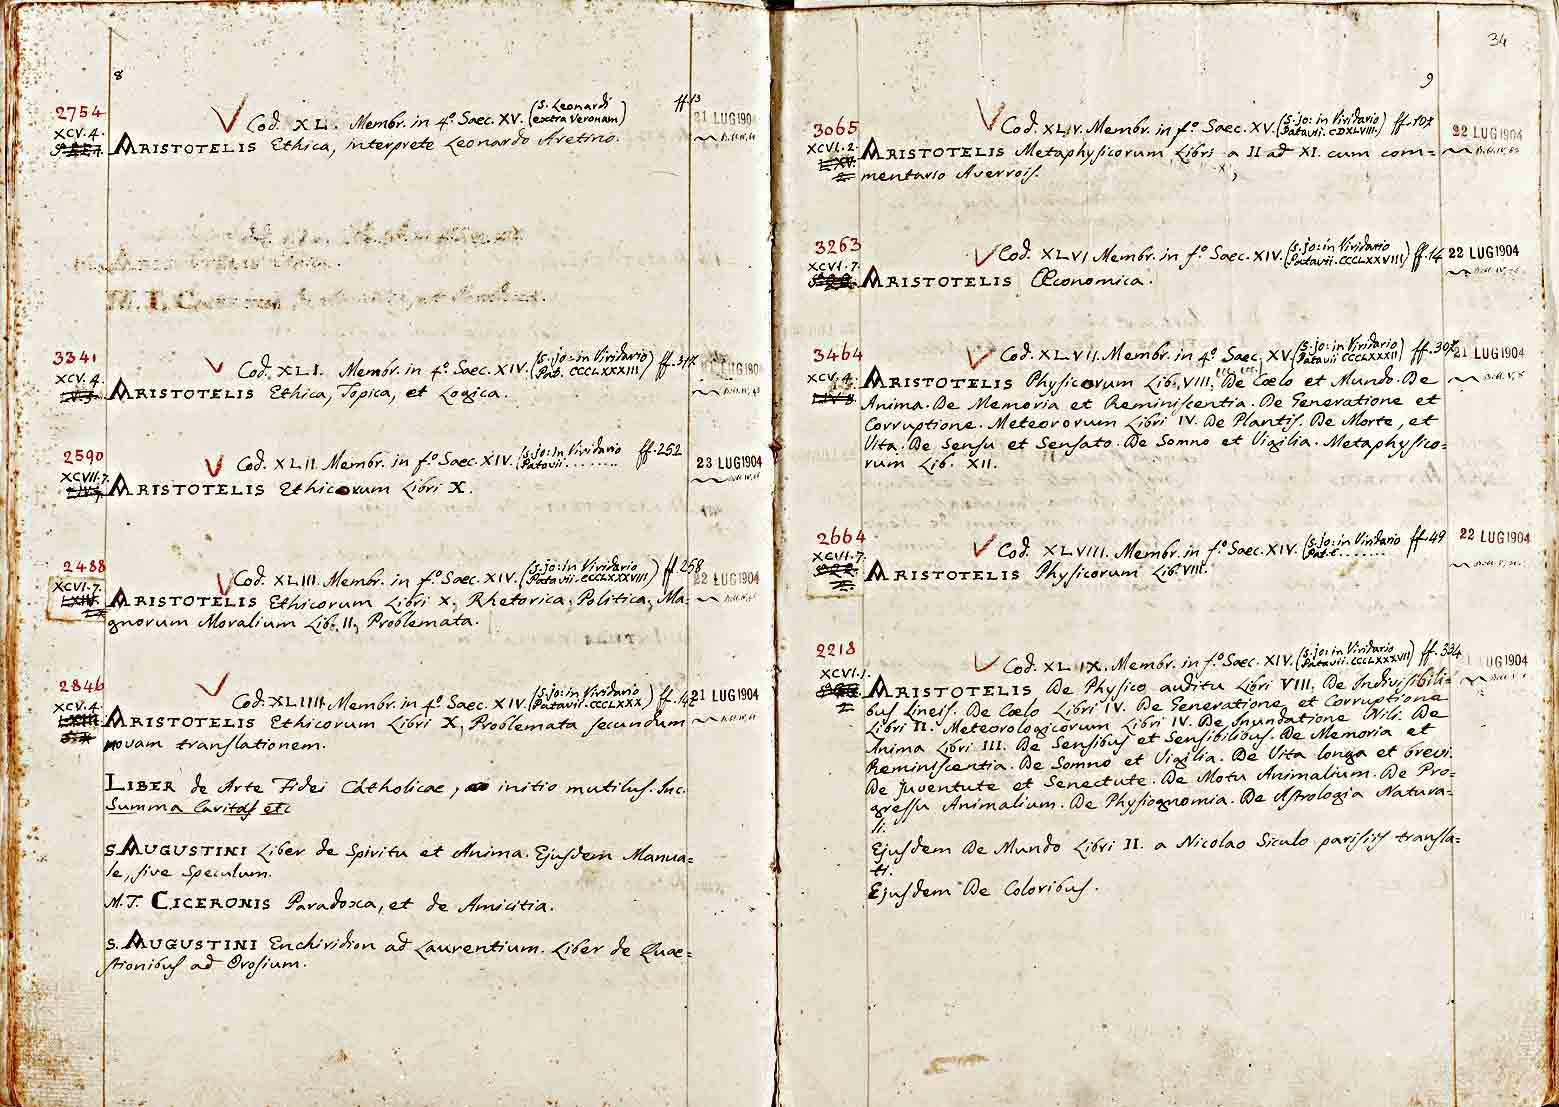 8
2754
XCV. 4.
Cod. XL. Membr. in 4.º Saec. XV. (S. Leonardi
extra Veronam)
ff. 13
21 LUG 190
ARISTOTELIS Ethica, interprete Leonardo Aretino.
3341
XCV. 4.
Cod. XLI. Membr. in 4.º Saec. XIV. (S. Jo: in Viridario
Pat. CCCLXXXIII) ff. 317
LUG 190
ARISTOTELIS Ethica, Topica, et Logica.
2590
XCVII. 7.
Cod. XLII. Membr. in f.º Saec. XIV. (S. Jo: in Viridario
Patavii ........ ff. 252
23 LUG 1904
ARISTOTELIS Ethicorum Libri X.
2488
XCVI. 7.
LXIV.
Cod. XLIII. Membr. in f.º Saec. XIV. (S. Jo: in Viridario
Patavii. CCCLXXXVIII) ff. 258
22 LUG 1904
ARISTOTELIS Ethicorum Libri X, Rhetorica, Politica, Ma=
gnorum Moralium Lib. II, Problemata.
2846
XCV. 4.
Cod. XLIIII. Membr. in 4.º Saec. XIV. (S. Jo: in Viridario
Patavii. CCCLXXX) ff. 142
21 LUG 1904
ARISTOTELIS Ethicorum Libri X, Problemata secundum
novam translationem.
LIBER de Arte Fidei Catholicae, initio mutilus. Inc.
Summa Caritas etc
S. AUGUSTINI Liber de Spiritu et Anima. Ejusdem Manua=
le, sive Speculum.
M. T. CICERONIS Paradoxa, et de Amicitia.
S. AUGUSTINI Enchiridion ad Laurentium. Liber de Quae=
stionibus ad Orosium.
34
9
3065
XCVI. 2.
Cod. XLIV. Membr. in f.º Saec. XV. (S. Jo: in Viridario
Patavii. CDXLVIII.) ff. 107
22 LUG 1904
ARISTOTELIS Metaphysicorum Libri a II ad XI. cum com=
mentario Averrois.
3263
XCVI. 7.
Cod. XLVI Membr. in f.º Saec. XIV. (S. Jo: in Viridario
Patavii. CCCLXXVIII) ff. 14
22 LUG 1904
ARISTOTELIS Œconomica.
3464
XCV. 4.
Cod. XLVII. Membr. in 4.º Saec. XV. (S. Jo: in Viridario
Patavii CCCLXXXII) ff. 307
21 LUG 1904
ARISTOTELIS Physicorum Lib. VIII. De Cœlo et Mundo. De
Anima. De Memoria et Reminiscentia. De Generatione et
Corruptione. Meteororum Libri IV. De Plantis. De Morte, et
Vita. De Sensu et Sensato. De Somno et Vigilia. Metaphysico=
rum Lib. XII.
2664
XCVI. 7.
Cod. XLVIII. Membr. in f.º Saec. XIV. (S. Jo: in Viridario
ff. 49
22 LUG 1904
ARISTOTELIS Physicorum Lib. VIII.
2218
XCVI. 1.
Cod. XLIX. Membr. in f.º Saec. XIV. (S. Jo: in Viridario
Patavii. CCCLXXXVII) ff. 324
LUG 1904
ARISTOTELIS De Physico auditu Libri VIII. De Indivisibili=
bus Lineis. De Cœlo Libri IV. De Generatione et Corruptione
Libri II. Meteorologicorum Libri IV. De Inundatione Nili. De
Anima Libri III. De Sensibus et Sensibilibus. De Memoria et
Reminiscentia. De Somno et Vigilia. De Vita longa et brevi.
De Juventute et Senectute. De Motu Animalium. De Pro=
gressu Animalium. De Physiognomia. De Astrologia Natura=
li.
Ejusdem De Mundo Libri II. a Nicolao Siculo parisiis transla=
ti.
Ejusdem De Coloribus.